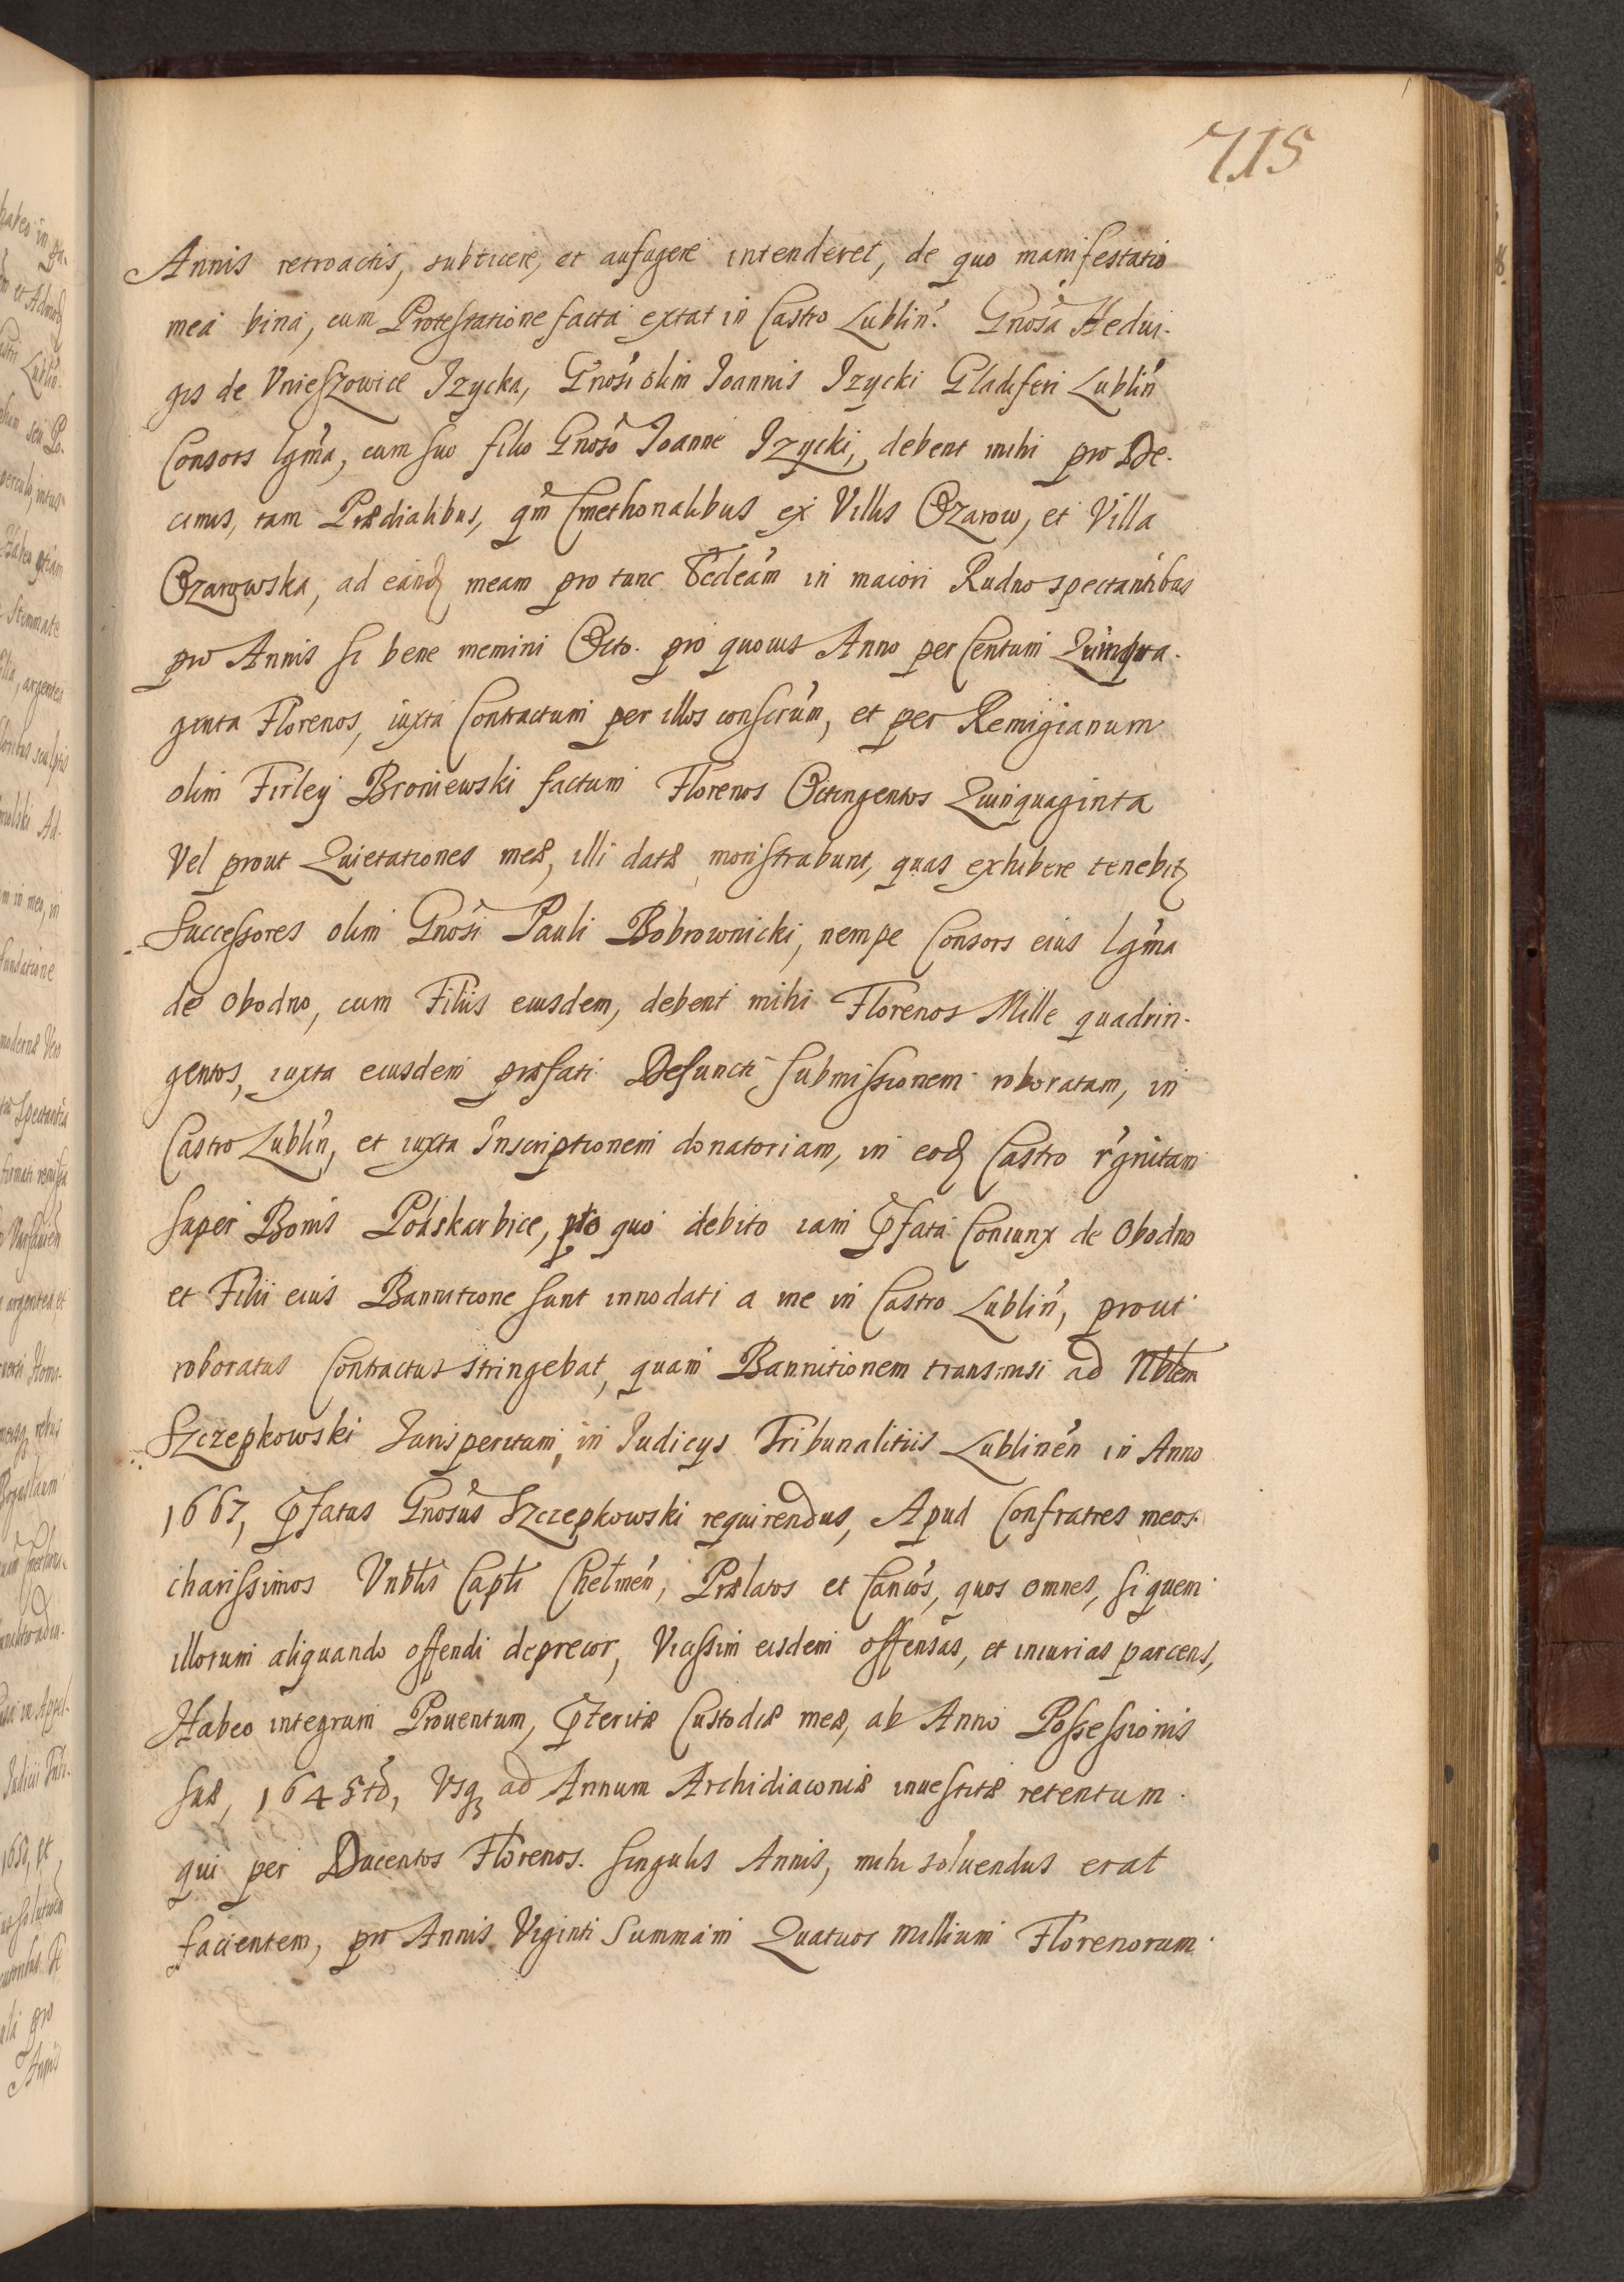 715
Annis retroactis, subticere, et aufugere intenderet, de quo manifestatio
mea bina, cum Protestatione facta extat in Castro Lublin. Gnosa Hedui-
gis de Vnieszowice Izycka, Gnosi olim Joannis Izycki Gladiferi Lublin
Consors lgma, cum suo filio Gnoso Joanne Izycki, debent mihi pro De-
cimis, tam Prædialibus, qm Cmethonalibus ex Villis Ozarow, et Villa
Ozarowska, ad eandꝫ meam pro tunc Sedeam in maiori Rudno spectantibus
pro Annis si bene memini Octo. pro quouis Anno per Centum Quinqua-
ginta Florenos, iuxta Contractum per illos conscrum, et per Remigianum
olim Firley Broniewski factum Florenos Octingentos Quinquaginta
Vel prout Quietationes meæ, illi datæ monstrabunt, quas exhibere tenebitꝫ
Successores olim Gnosi Pauli Bobrownicki, nempe Consors eius lgma
de Obodno, cum Filiis eiusdem, debent mihi Florenos Mille quadrin-
gentos, iuxta eiusdem præfati Defuncti submissionem roboratam, in
Castro Lublin, et iuxta Inscriptionem donatoriam, in eodꝫ Castro rgnitam
super Bonis Polskarbice, pro quo debito iam ꝓfata Coniunx de Obodno
et Filii eius Bannitione sunt innodati a me in Castro Lublin, prout
roboratus Contractus stringebat, quam Bannitionem transmisi ad Nblem
Szczepkowski Jurisperitum, in Judicys Tribunalitiis Lublinen in Anno
1667, ꝓfatus Gnosus Szczepkowski requirendus, Apud Confratres meos
charissimos Vnblis Capli Chelmen, Prælatos et Cancos, quos omnes, si quem
illorum aliquando offendi deprecor, Vicissim eisdem offensas, et iniurias parcens,
Habeo integrum Prouentum, ꝓteritæ Custodiæ meæ, ab Anno Possessionis
suæ, 1645to, Vsqꝫ ad Annum Archidiaconiæ inuestitæ retentum
qui per Ducentos Florenos. singulis Annis, mihi soluendus erat
facientem, pro Annis Viginti Summam Quatuor Millium Florenorum